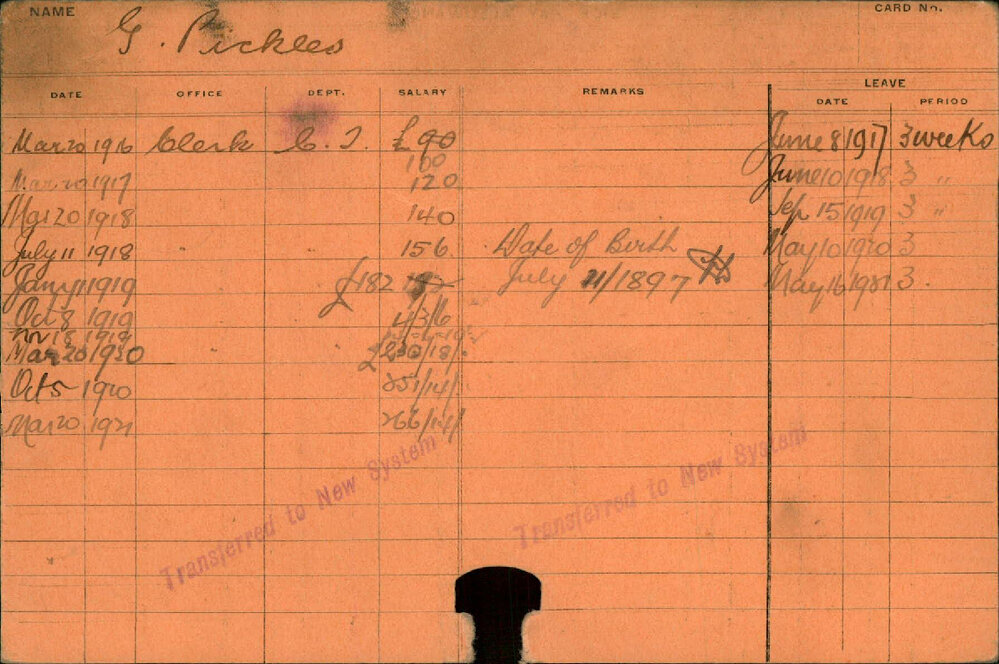 NAME G. Pickles CARD No.
DATE OFFICE DEPT. SALARY REMARKS LEAVE
DATE PERIOD
Mar 20 1916 Clerk C. I. £90 June 8 1917 3 weeks
100
Mar 20 1917 120 June 10 1918 3 "
Mar 20 1918 140 Sep 15 1919 3 "
July 11 1918 156 Date of Birth May 10 1920 3
Jany 11 1919 £182 July 11/1897 May 16 1921 3.
Oct 8 1919 4/3/6
Nov 18 1919
Mar 20 1920 £230/18/.
Oct 5 1920 251/14/.
Mar 20 1921 266/14/
Transferred to New System
Transferred to New System